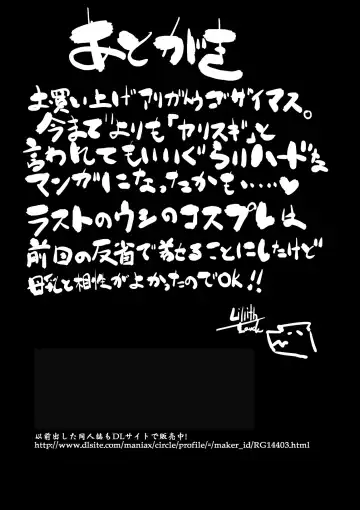 あとがき
お買い上げアリガトウゴザイマス。
今までよりも「ヤリスギ」と
言われてもいいぐらいハードな
マンガになったかも……♥
ラストのウシのコスプレは
前回の反省で着せることにしたけど
母乳と相性がよかったのでOK!!
Lilith
以前出した同人誌もDLサイトで販売中!
http://www.dlsite.com/maniax/circle/profile/=/maker_id/RG14403.html